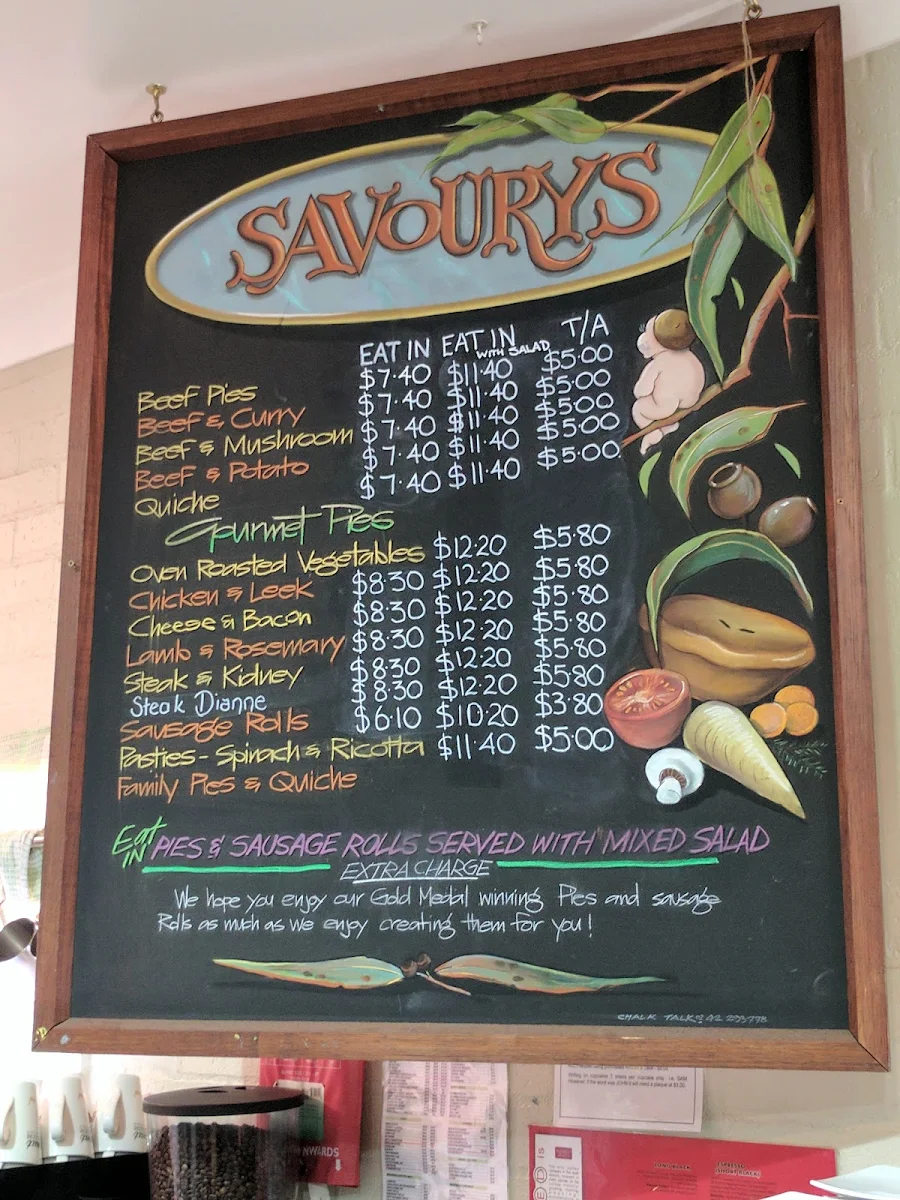 SAVOURYS
EAT IN EAT IN WITH SALAD T/A
Beef Pies $7.40 $11.40 $5.00
Beef & Curry $7.40 $11.40 $5.00
Beef & Mushroom $7.40 $11.40 $5.00
Beef & Potato $7.40 $11.40 $5.00
Quiche $7.40 $11.40 $5.00
Gourmet Pies
Oven Roasted Vegetables $12.20 $5.80
Chicken & Leek $8.30 $12.20 $5.80
Cheese & Bacon $8.30 $12.20 $5.80
Lamb & Rosemary $8.30 $12.20 $5.80
Steak & Kidney $8.30 $12.20 $5.80
Steak Dianne $8.30 $12.20 $5.80
Sausage Rolls $6.10 $10.20 $3.80
Pasties - Spinach & Ricotta $11.40 $5.00
Family Pies & Quiche
Eat IN PIES & SAUSAGE ROLLS SERVED WITH MIXED SALAD
EXTRA CHARGE
We hope you enjoy our Gold Medal winning Pies and sausage
Rolls as much as we enjoy creating them for you!
CHALK TALK
NWARDS